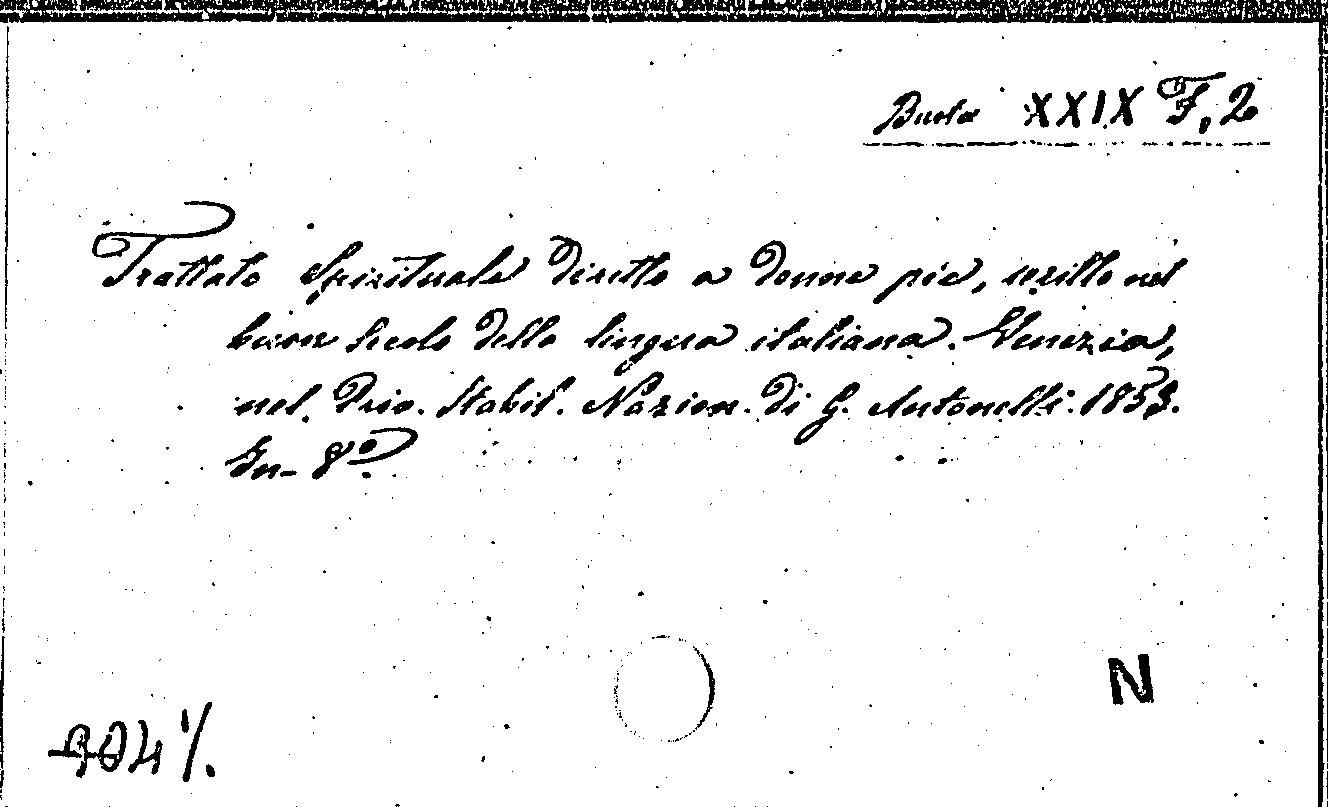 Busta XXIX F, 2
Trattato Spirituale diretto a donne pie, scritto nel
buon secolo della lingua italiana. Venezia,
nel Priv. Stabil. Nazion. di G. Antonelli. 1853.
In- 8º.
N